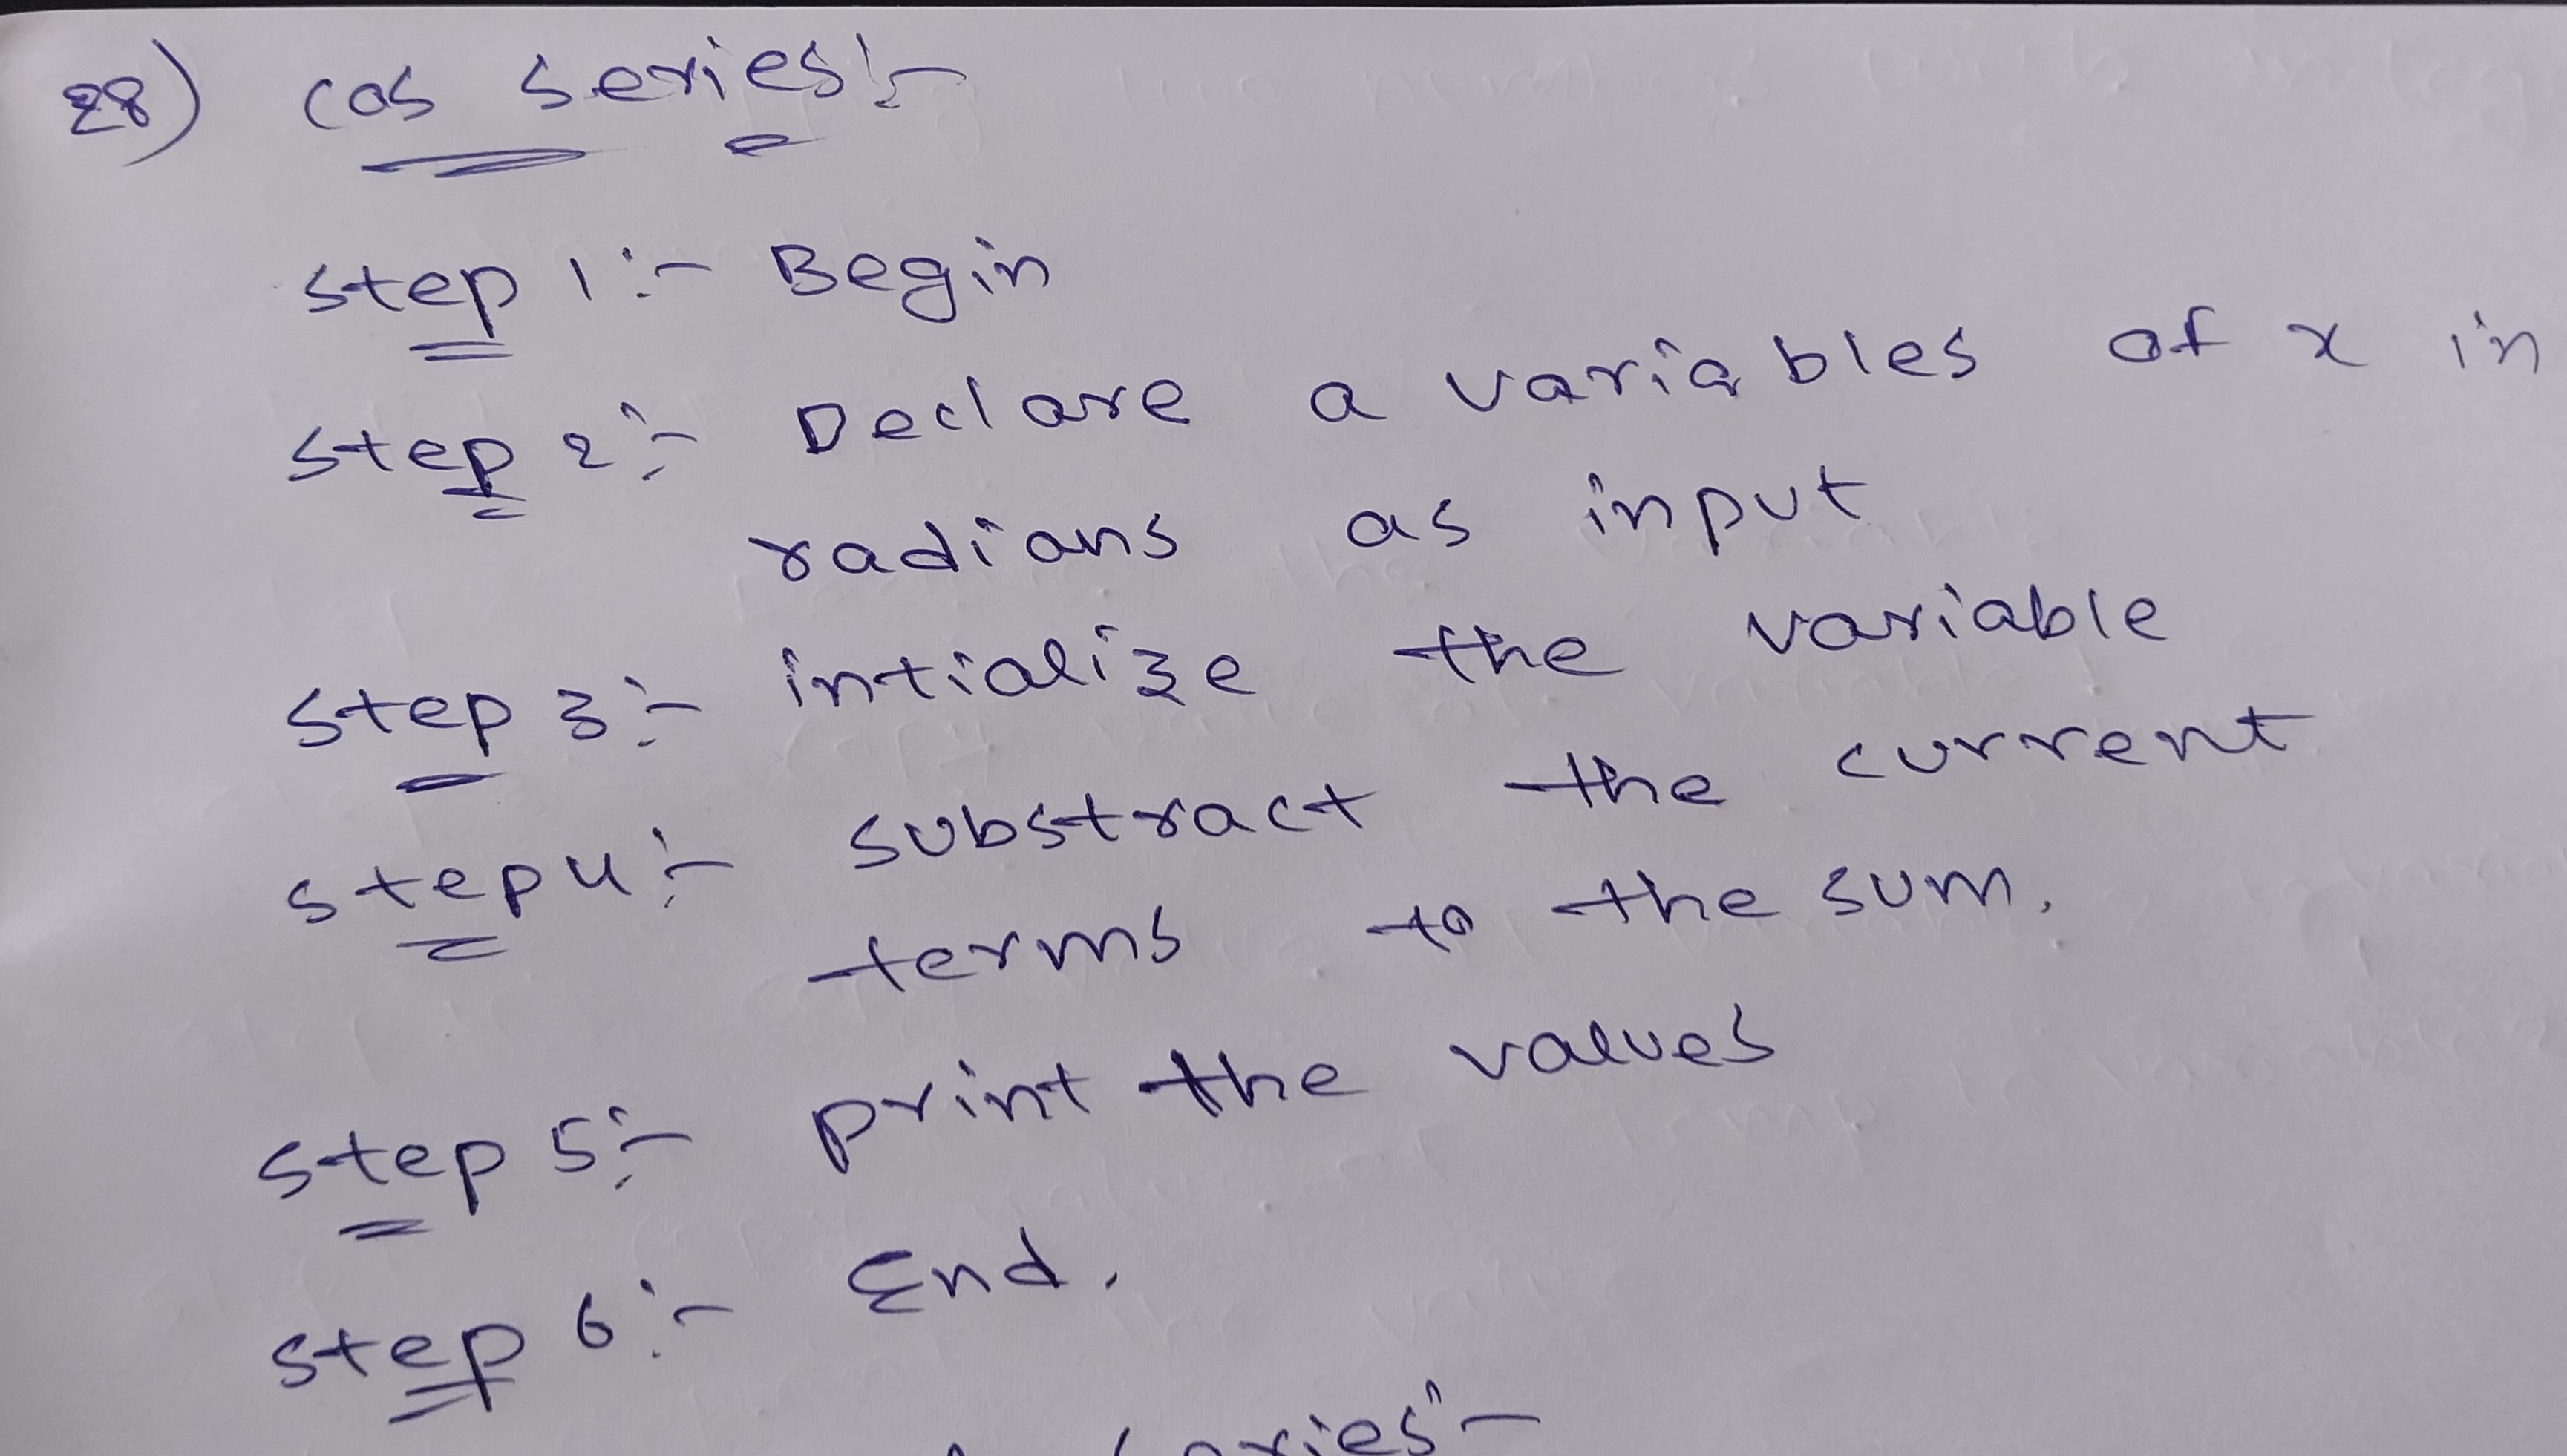 28) cos series:-
step 1:- Begin
step 2:- Declare a variables of x in
radians as input
step 3:- intialize the variable
step 4:- substract the current
terms to the sum.
step 5:- print the values
step 6:- End.
series:-